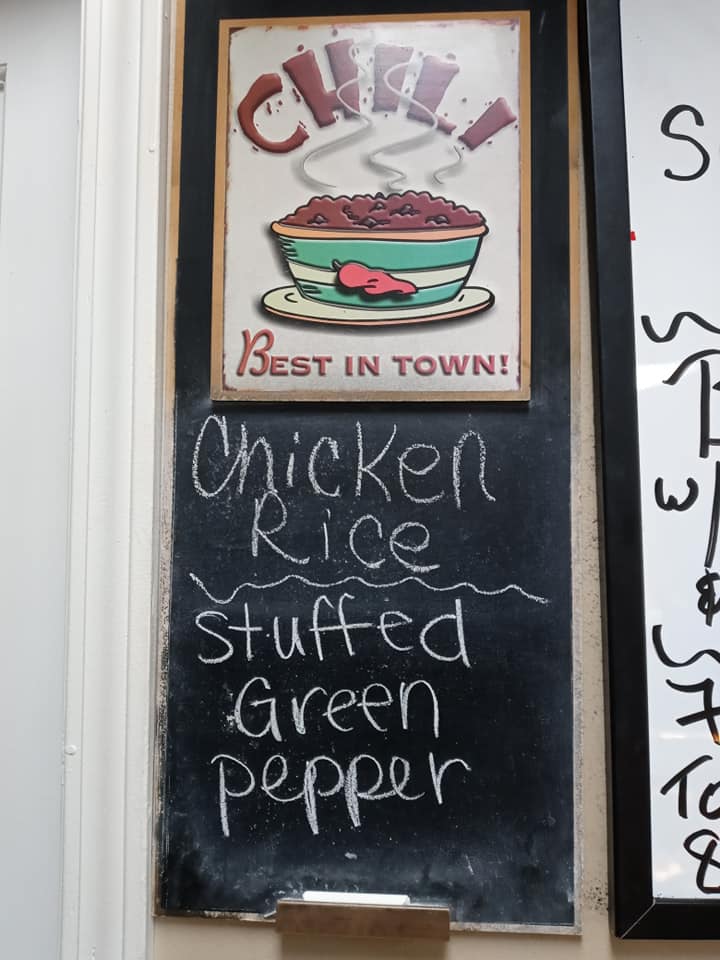 CHILI
BEST IN TOWN!
Chicken
Rice
Stuffed
Green
pepper
w/
&
7
To
&